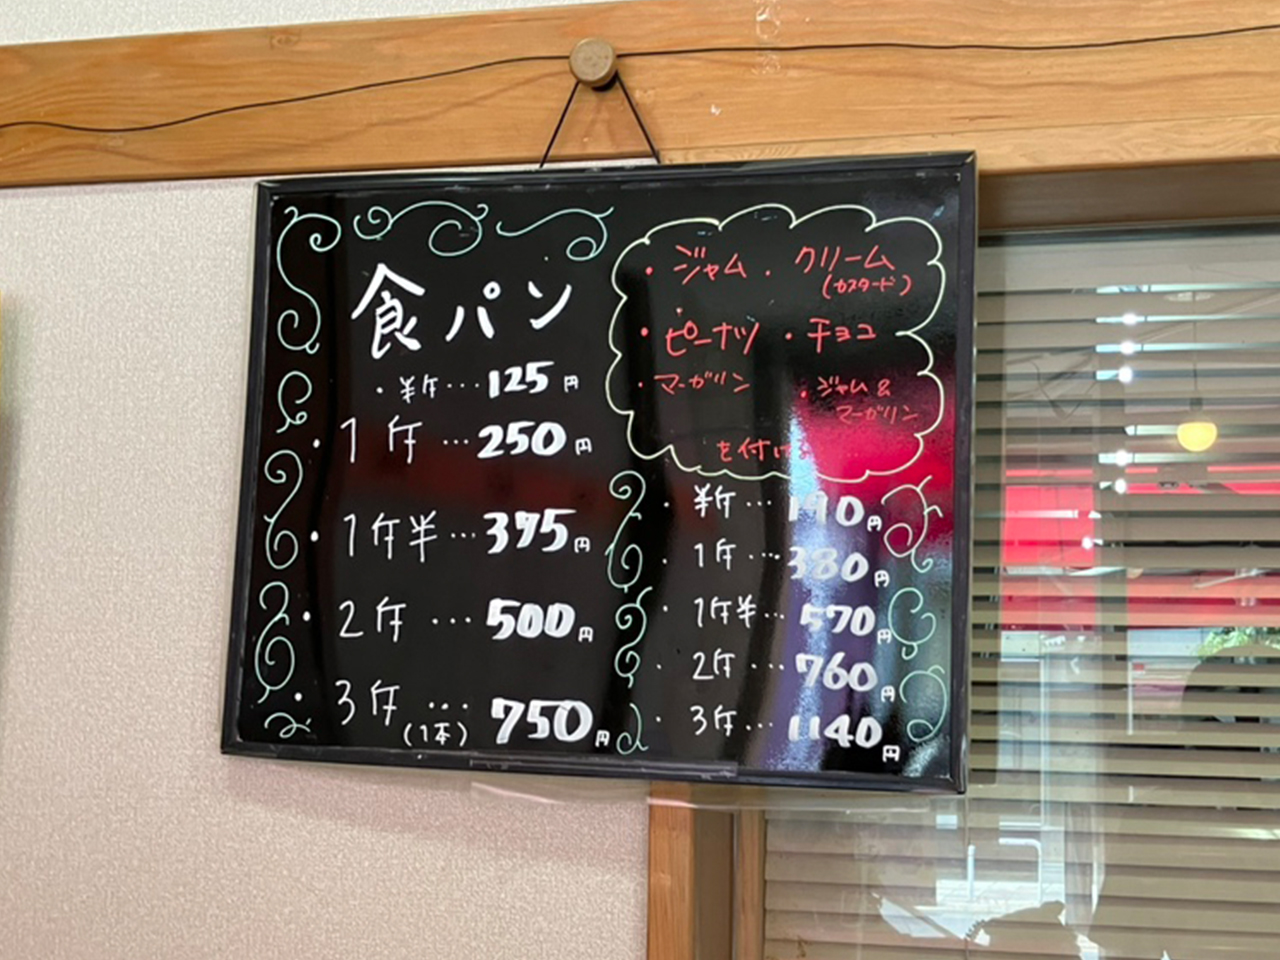 食パン
・半斤…125円
・1斤…250円
・1斤半…375円
・2斤…500円
・3斤…750円
(1本)
・ジャム ・クリーム
(カスタード)
・ピーナツ ・チョコ
・マーガリン ・ジャム&
マーガリン
を付ける
・半斤…190円
・1斤…380円
・1斤半…570円
・2斤…760円
・3斤…1140円